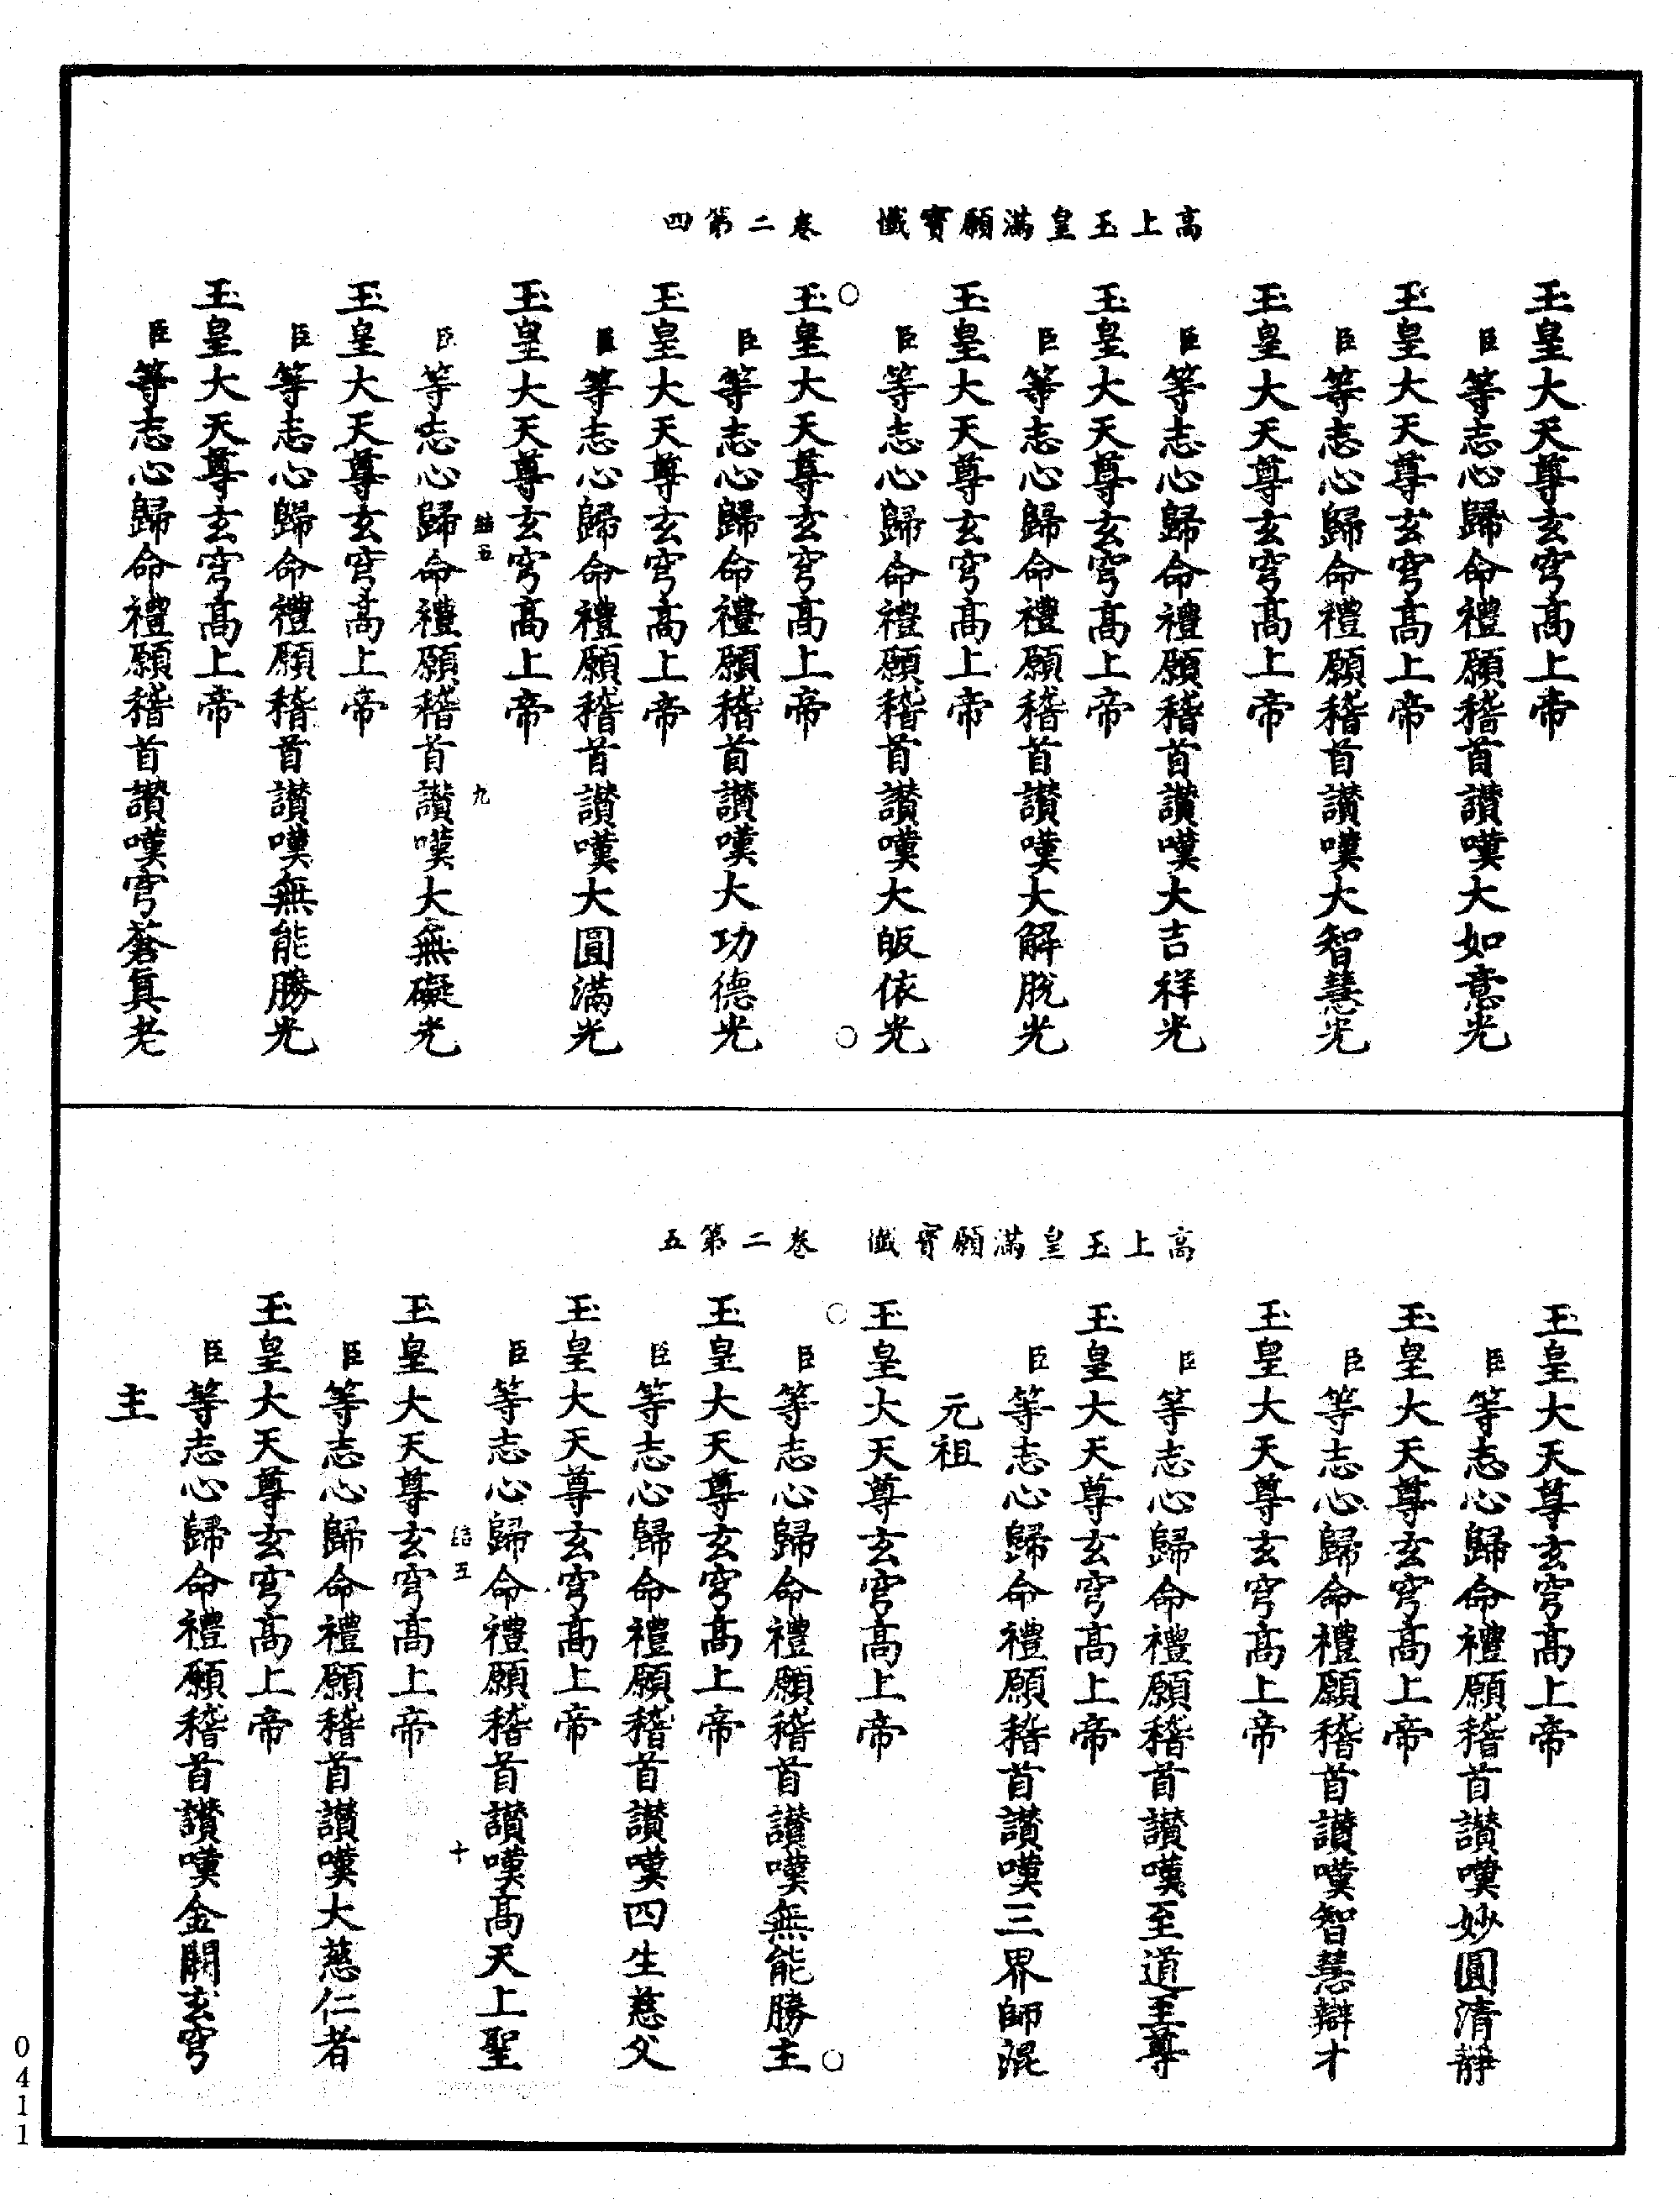 高上玉皇滿願寶懺　卷二第四
玉皇大天尊玄穹高上帝
臣等志心歸命禮願稽首讚嘆大如意光
玉皇大天尊玄穹高上帝
臣等志心歸命禮願稽首讚嘆大智慧光
玉皇大天尊玄穹高上帝
臣等志心歸命禮願稽首讚嘆大吉祥光
玉皇大天尊玄穹高上帝
臣等志心歸命禮願稽首讚嘆大解脫光
玉皇大天尊玄穹高上帝
臣等志心歸命禮願稽首讚嘆大皈依光
○　○
玉皇大天尊玄穹高上帝
臣等志心歸命禮願稽首讚嘆大功德光
玉皇大天尊玄穹高上帝
臣等志心歸命禮願稽首讚嘆大圓滿光
玉皇大天尊玄穹高上帝
結五　九
臣等志心歸命禮願稽首讚嘆大無礙光
玉皇大天尊玄穹高上帝
臣等志心歸命禮願稽首讚嘆無能勝光
玉皇大天尊玄穹高上帝
臣等志心歸命禮願稽首讚嘆穹蒼真老
高上玉皇滿願寶懺　卷二第五
玉皇大天尊玄穹高上帝
臣等志心歸命禮願稽首讚嘆妙圓清靜
玉皇大天尊玄穹高上帝
臣等志心歸命禮願稽首讚嘆智慧辯才
玉皇大天尊玄穹高上帝
臣等志心歸命禮願稽首讚嘆至道至尊
玉皇大天尊玄穹高上帝
臣等志心歸命禮願稽首讚嘆三界師混
元祖
玉皇大天尊玄穹高上帝
○　○
臣等志心歸命禮願稽首讚嘆無能勝主
玉皇大天尊玄穹高上帝
臣等志心歸命禮願稽首讚嘆四生慈父
玉皇大天尊玄穹高上帝
臣等志心歸命禮願稽首讚嘆高天上聖
結五　十
玉皇大天尊玄穹高上帝
臣等志心歸命禮願稽首讚嘆大慈仁者
玉皇大天尊玄穹高上帝
臣等志心歸命禮願稽首讚嘆金闕玄穹
主
0411